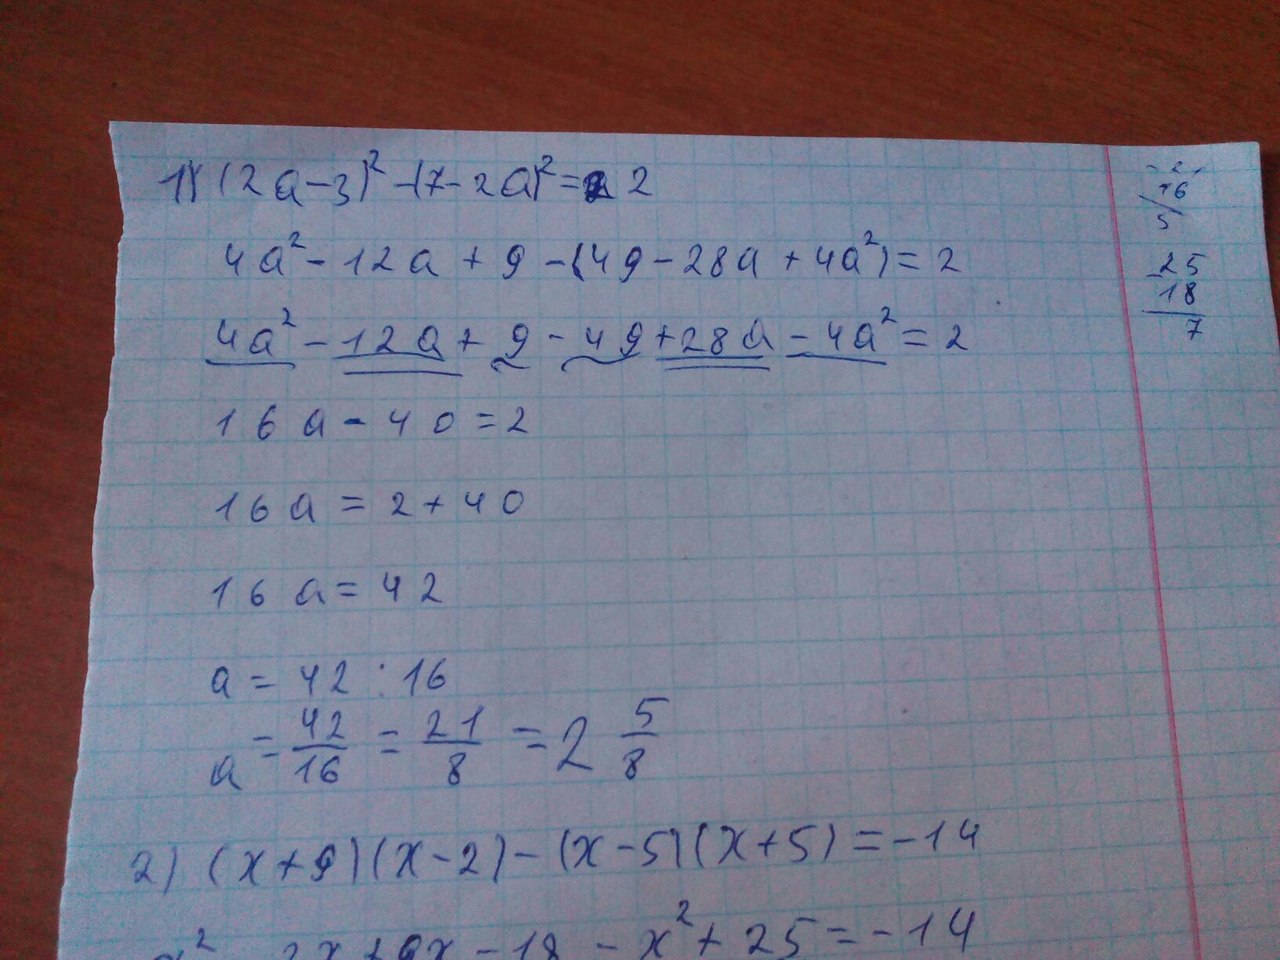 1) (2a-3)²-(7-2a)²= 2
4a²-12a+9-(49-28a+4a²)=2
4a²-12a+9-49+28a-4a²=2
16a-40=2
16a=2+40
16a=42
a=42:16
a=42/16=21/8=2 5/8
2) (x+9)(x-2)-(x-5)(x+5)=-14
x²-2x+9x-18-x²+25=-14
21
16
5
25
18
7